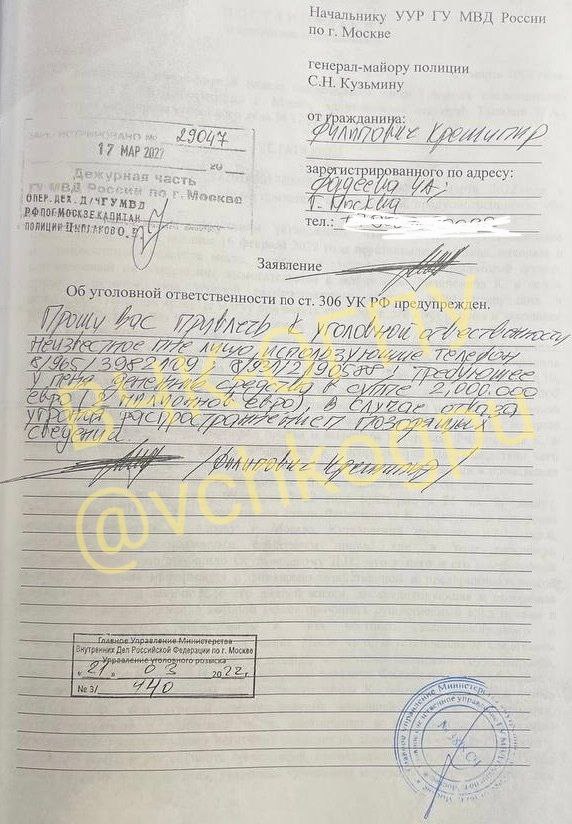 Начальнику УУР ГУ МВД России
по г. Москве
генерал-майору полиции
С.Н. Кузьмину
от гражданина:
Филипович Крешимир
зарегистрированного по адресу:
г. Москва
тел.:
№ 29047
17 МАР 2022
20
Дежурная часть
ГУ МВД России по г. Москве
ОПЕР. ДЕЖ. Д/Ч ГУ МВД
РФ ПО Г. МОСКВЕ КАПИТАН
ПОЛИЦИИ
Заявление
Об уголовной ответственности по ст. 306 УК РФ предупрежден.
Прошу вас привлечь к уголовной ответственности
неизвестное мне лицо использующие телефон
требующее
у меня денежные средства в сумме 2,000.000
евро (2 миллионов евро), в случае отказа
угрожая распространением позорящих
сведений
/Филипович Крешимир/
ВЧК-ОГПУ
@vchkogpu
Главное Управление Министерства
Внутренних Дел Российской Федерации по г. Москве
Управление уголовного розыска
« 21 » 03 2022 г.
№ 3/ 440